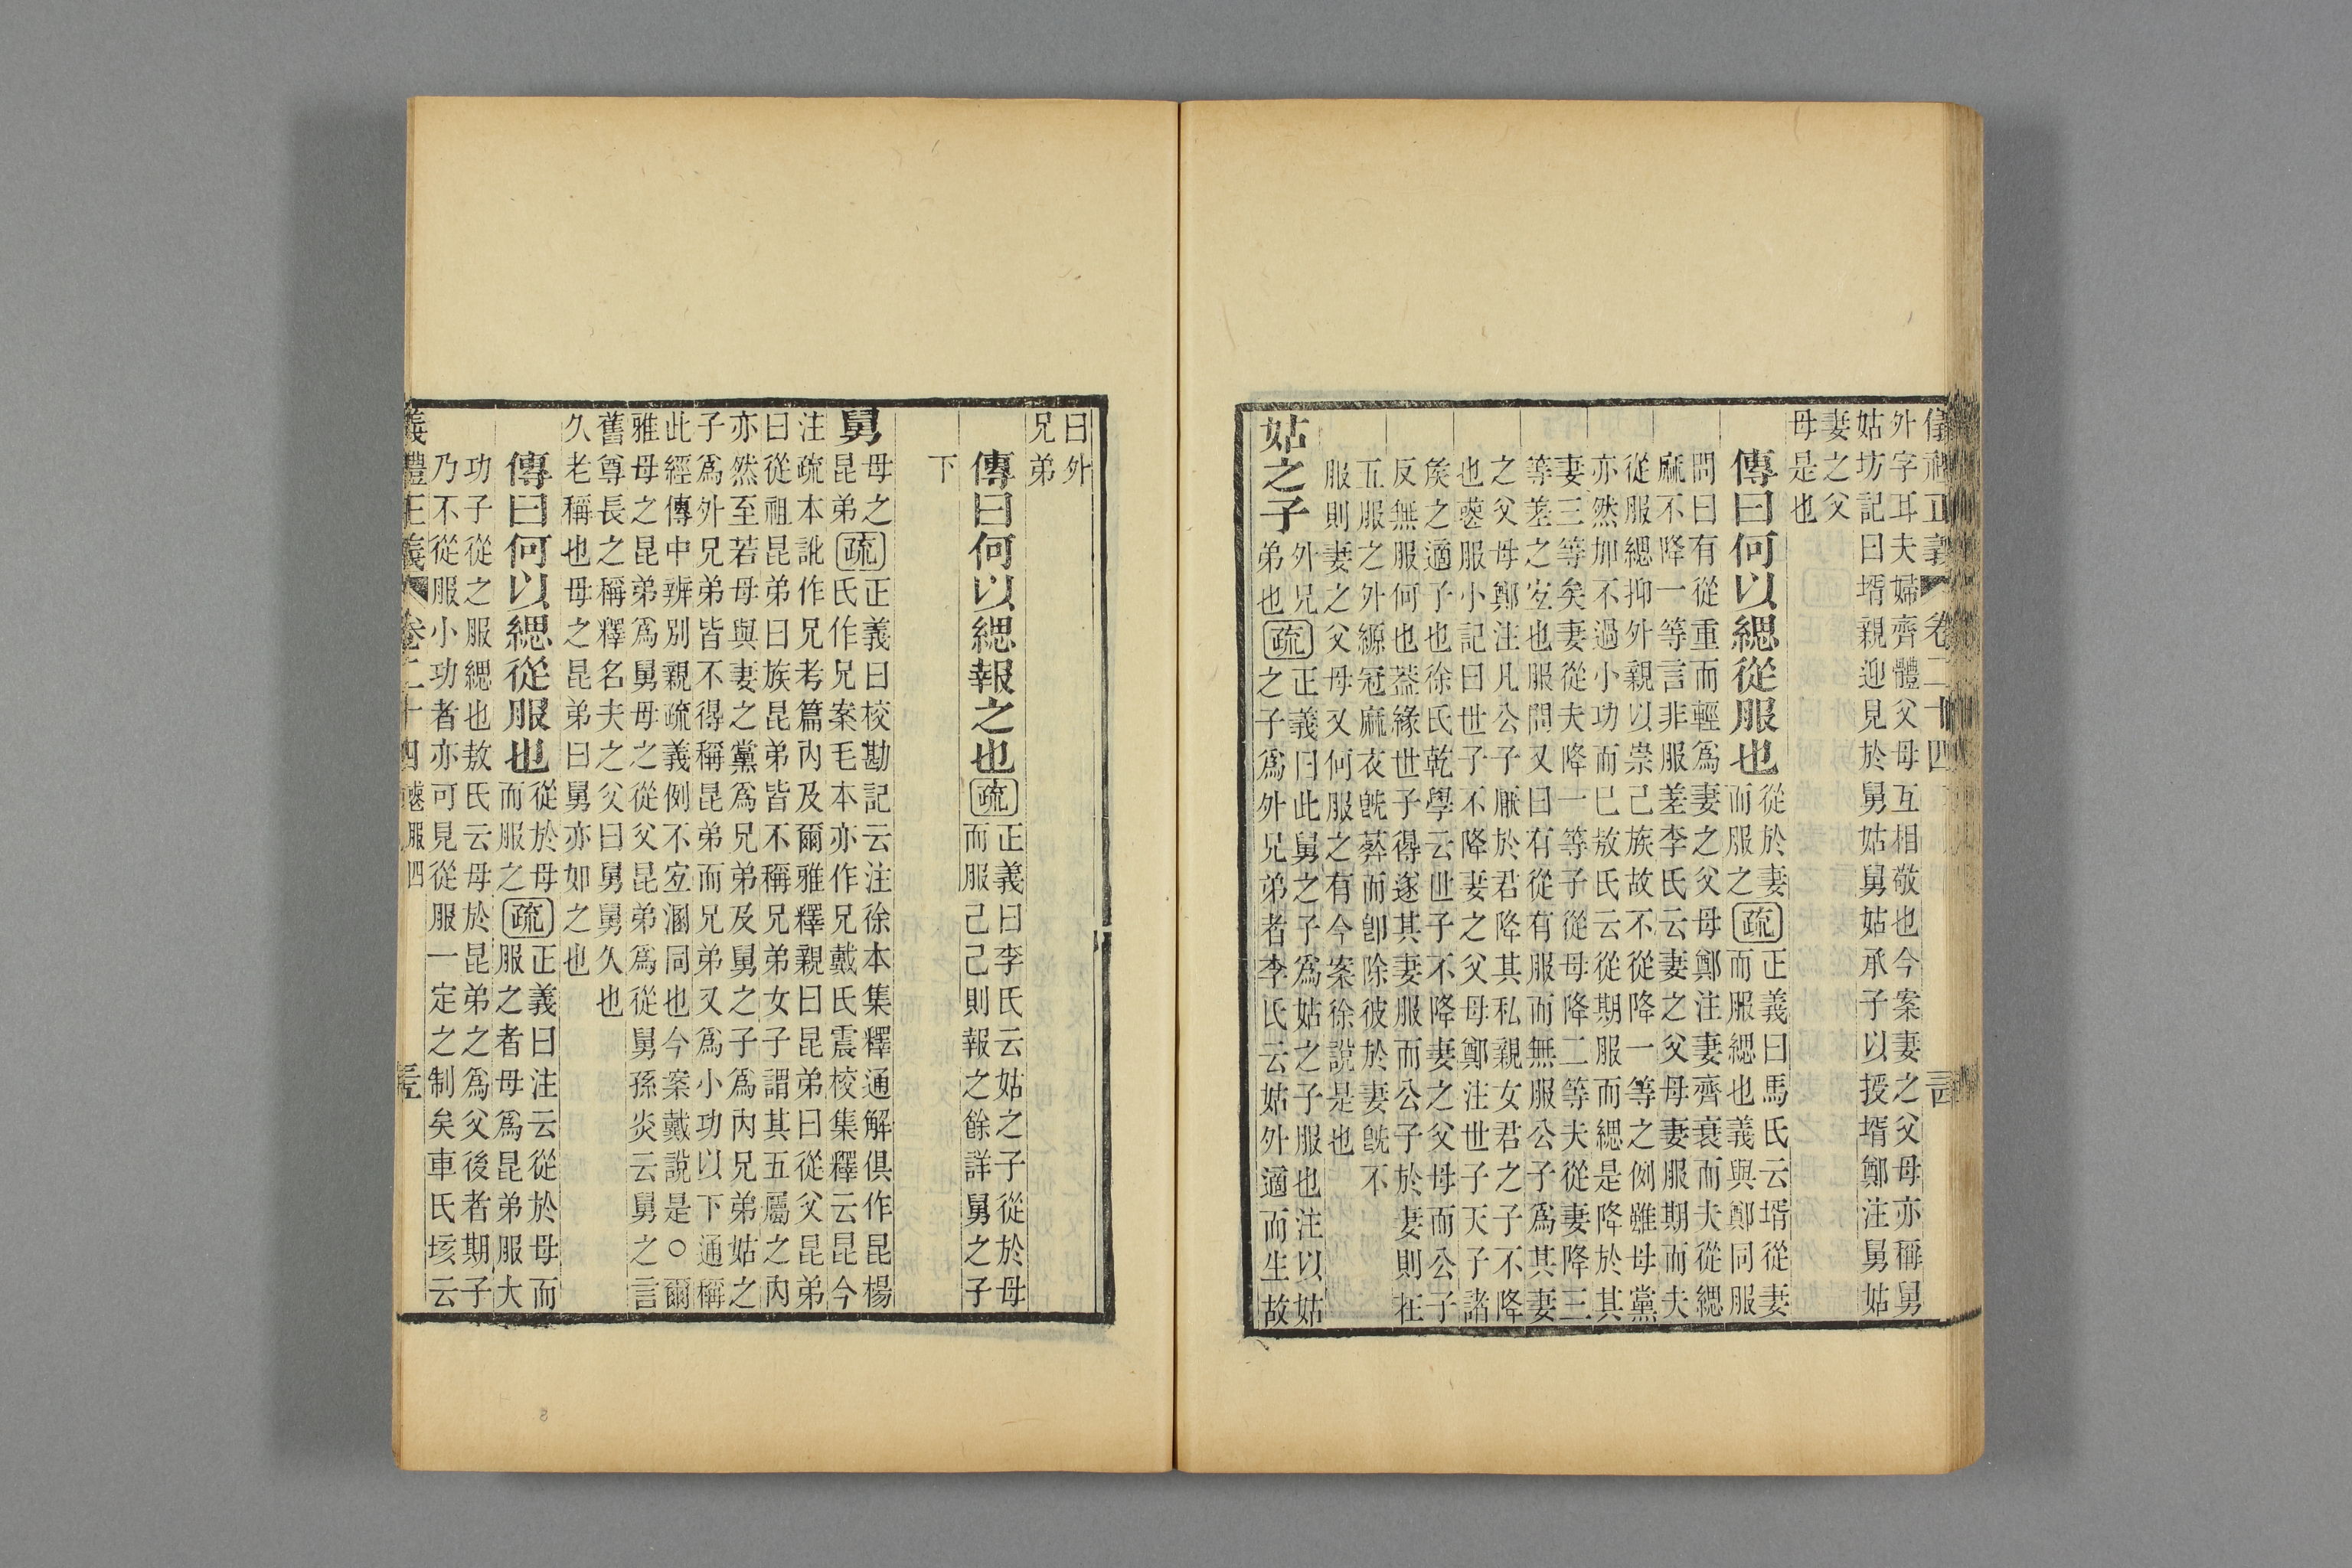 儀禮正義 卷二十四
外字耳夫婦齊體父母互相敬也今案妻之父母亦稱舅
姑坊記曰壻親迎見於舅姑舅姑承子以授壻鄭注舅姑
妻之父
母是也
傳曰何以緦從服也 從於妻
而服之 疏 正義曰馬氏云壻從妻
而服緦也義與鄭同服
問曰有從重而輕爲妻之父母鄭注妻齊衰而夫從緦
麻不降一等言非服差李氏云妻之父母妻服期而夫
從服緦抑外親以崇己族故不從降一等之例雖母黨
亦然加不過小功而已敖氏云從期服而緦是降於其
妻三等矣妻從夫降一等子從母降二等夫從妻降三
等差之宜也服問又曰有從有服而無服公子爲其妻
之父母鄭注凡公子厭於君降其私親女君之子不降
也喪服小記曰世子不降妻之父母鄭注世子天子諸
矦之適子也徐氏乾學云世子不降妻之父母而公子
反無服何也蓋緣世子得遂其妻服而公子於妻則在
五服之外縓冠麻衣旣葬而卽除彼於妻旣不
服則妻之父母又何服之有今案徐說是也
姑之子 外兄
弟也 疏 正義曰此舅之子爲姑之子服也注以姑
之子爲外兄弟者李氏云姑外適而生故
曰外
兄弟
傳曰何以緦報之也 疏 正義曰李氏云姑之子從於母
而服己己則報之餘詳舅之子
下
舅 母之
昆弟 疏 正義曰校勘記云注徐本集釋通解俱作昆楊
氏作兄案毛本亦作兄戴氏震校集釋云昆今
注疏本訛作兄考篇內及爾雅釋親曰昆弟曰從父昆弟
曰從祖昆弟曰族昆弟皆不稱兄弟女子謂其五屬之內
亦然至若母與妻之黨爲兄弟及舅之子爲內兄弟姑之
子爲外兄弟皆不得稱昆弟而兄弟又爲小功以下通稱
此經傳中辨別親疏義例不宜溷同也今案戴說是○爾
雅母之昆弟爲舅母之從父昆弟爲從舅孫炎云舅之言
舊尊長之稱釋名夫之父曰舅舅久也
久老稱也母之昆弟曰舅亦如之也
傳曰何以緦從服也 從於母
而服之 疏 正義曰注云從於母而
服之者母爲昆弟服大
功子從之服緦也敖氏云母於昆弟之爲父後者期子
乃不從服小功者亦可見從服一定之制矣車氏垓云
儀禮正義 卷二十四 喪服四